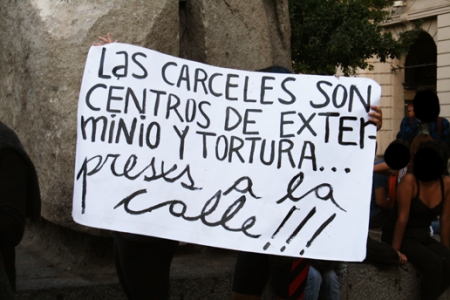 Las CARCELES SON
CENTROS DE EXTER-
MINIO Y TORTURA...
presxs a la
calle!!!